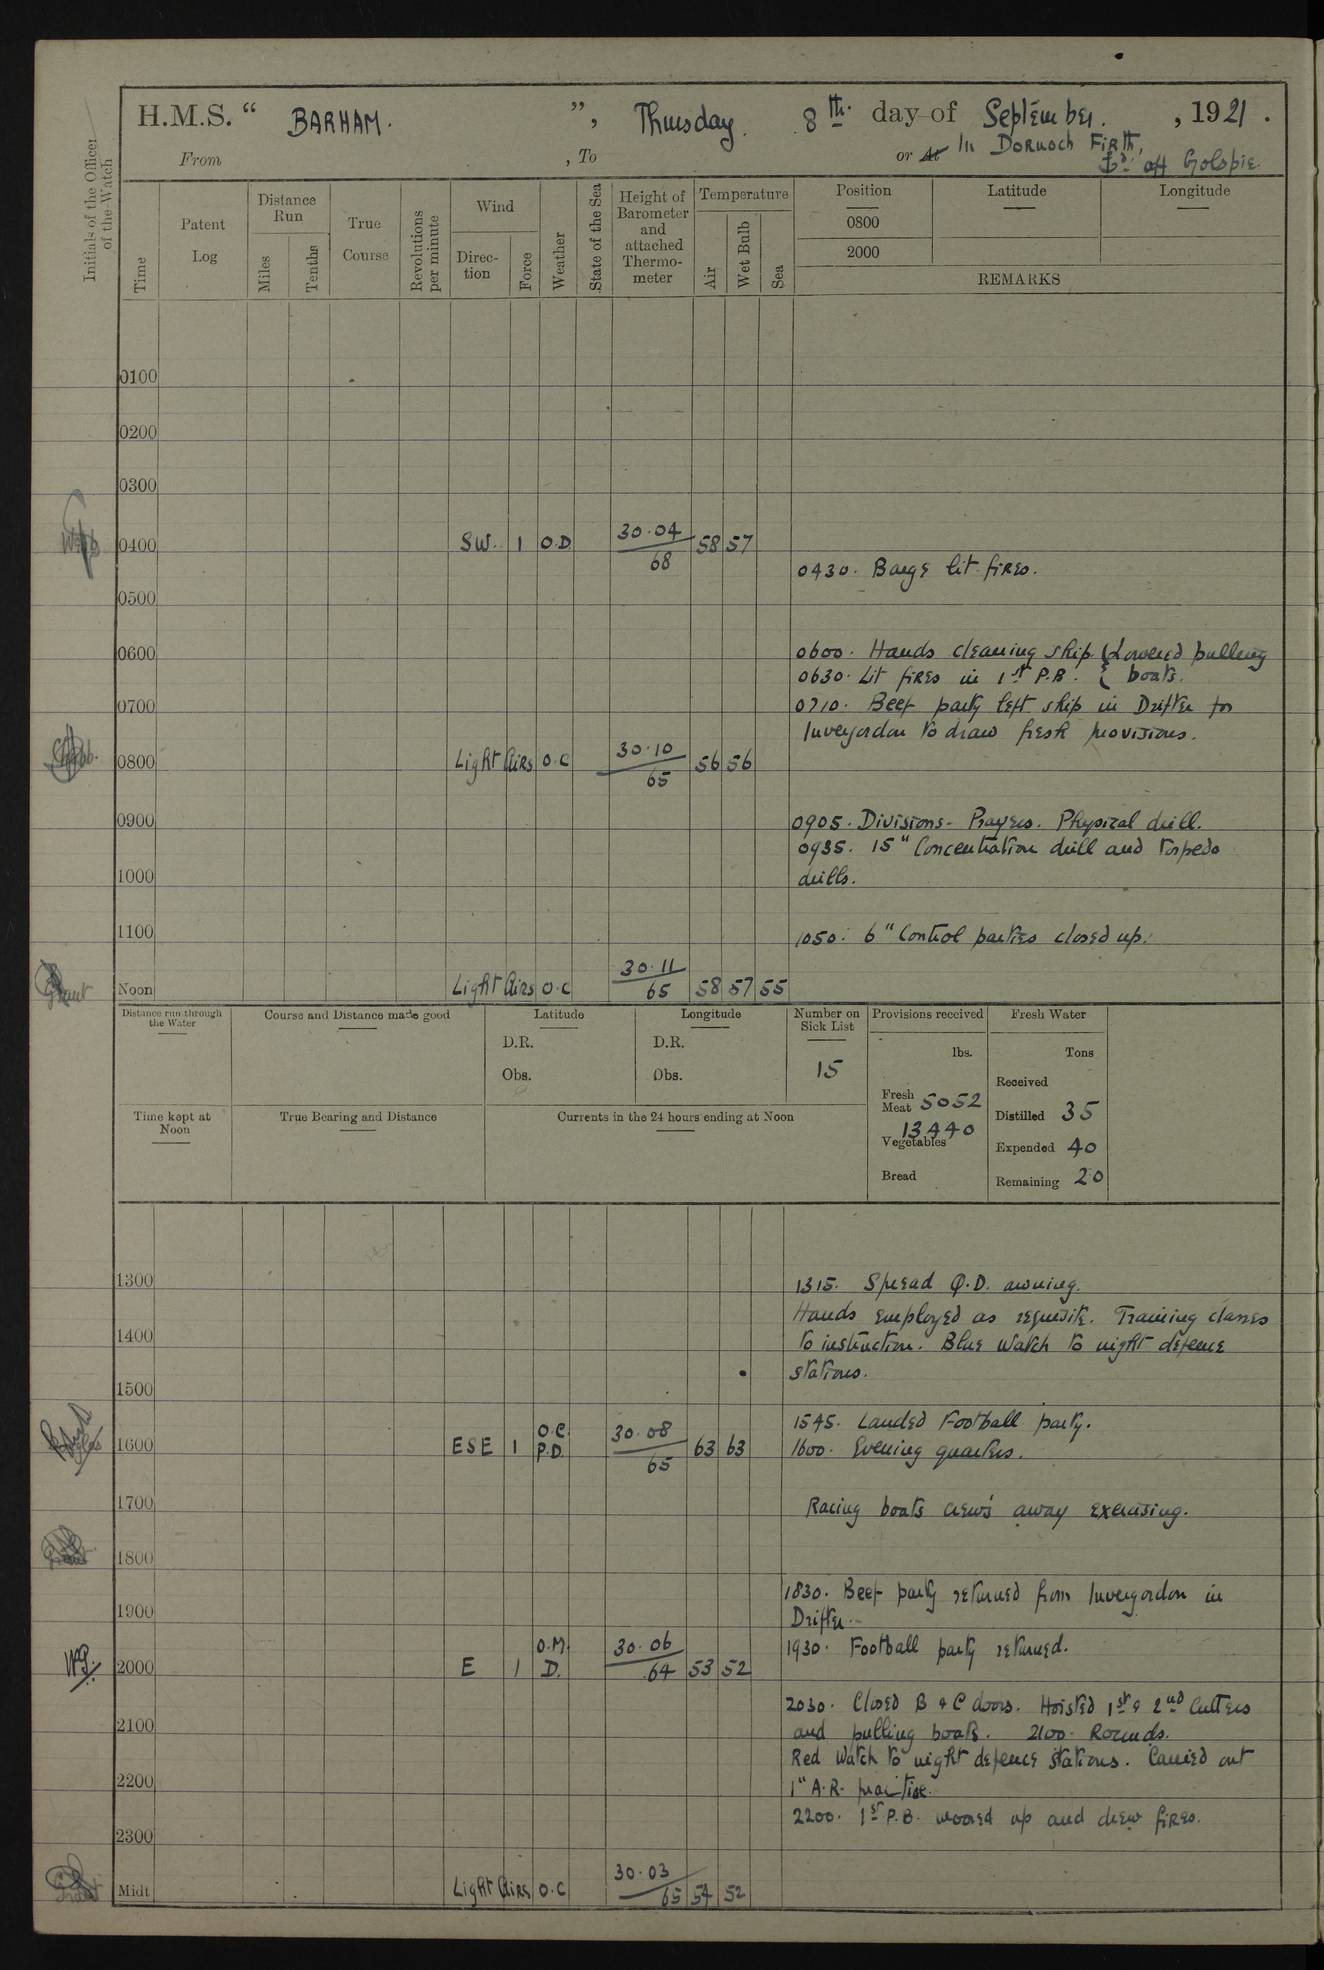 H.M.S. “ BARHAM. ”, Thursday. 8th. day of September. , 1921 .
From , To or At In Dornoch Firth,
off Golspie
Initials of the Officer of the Watch
Time
Patent Log
Distance Run
Miles
Tenths
True Course
Revolutions per minute
Wind
Direction
Force
Weather
State of the Sea
Height of Barometer and attached Thermometer
Temperature
Air
Wet Bulb
Sea
Position Latitude Longitude
0800
2000
REMARKS
0100
0200
0300
0400 SW. 1 O.D 30.04 / 68 58 57
0430. Barge lit fires.
0500
0600
0600. Hands cleaning ship { Lowered pulling
0630. Lit fires in 1st P.B. { boats.
0700
0710. Beef party left ship in Drifter for
Invergordon to draw fresh provisions.
0800 Light Airs O.C 30.10 / 65 56 56
0900
0905. Divisions - Prayers. Physical drill.
0935. 15" Concentration drill and torpedo
drills.
1000
1100
1050. 6" Control parties closed up.
Noon Light Airs O.C 30.11 / 65 58 57 55
Grant
Distance run through the Water
Course and Distance made good
Latitude
D.R.
Obs.
Longitude
D.R.
Obs.
Number on Sick List
15
Provisions received
lbs.
Fresh Meat 5052
13440
Vegetables
Bread
Fresh Water
Tons
Received
Distilled 35
Expended 40
Remaining 20
Time kept at Noon
True Bearing and Distance
Currents in the 24 hours ending at Noon
1300
1315. Spread Q.D. awning.
Hands employed as requisite. Training classes
1400
to instruction. Blue Watch to night defence
stations.
1500
1545. Landed Football party.
1600 ESE 1 O.C. P.D. 30.08 / 65 63 63
1600. Evening quarters.
1700
Racing boats crew's away exercising.
1800
1830. Beef party returned from Invergordon in
Drifter.
1900
1930. Football party returned.
2000 E 1 O.M. D. 30.06 / 64 53 52
2030. Closed B & C doors. Hoisted 1st & 2nd Cutters
and pulling boats. 2100. Rounds.
2100
Red Watch to night defence stations. Carried out
2200
1" A.R. practise.
2200. 1st P.B. moored up and drew fires.
2300
Midt Light Airs O.C 30.03 / 65 54 52